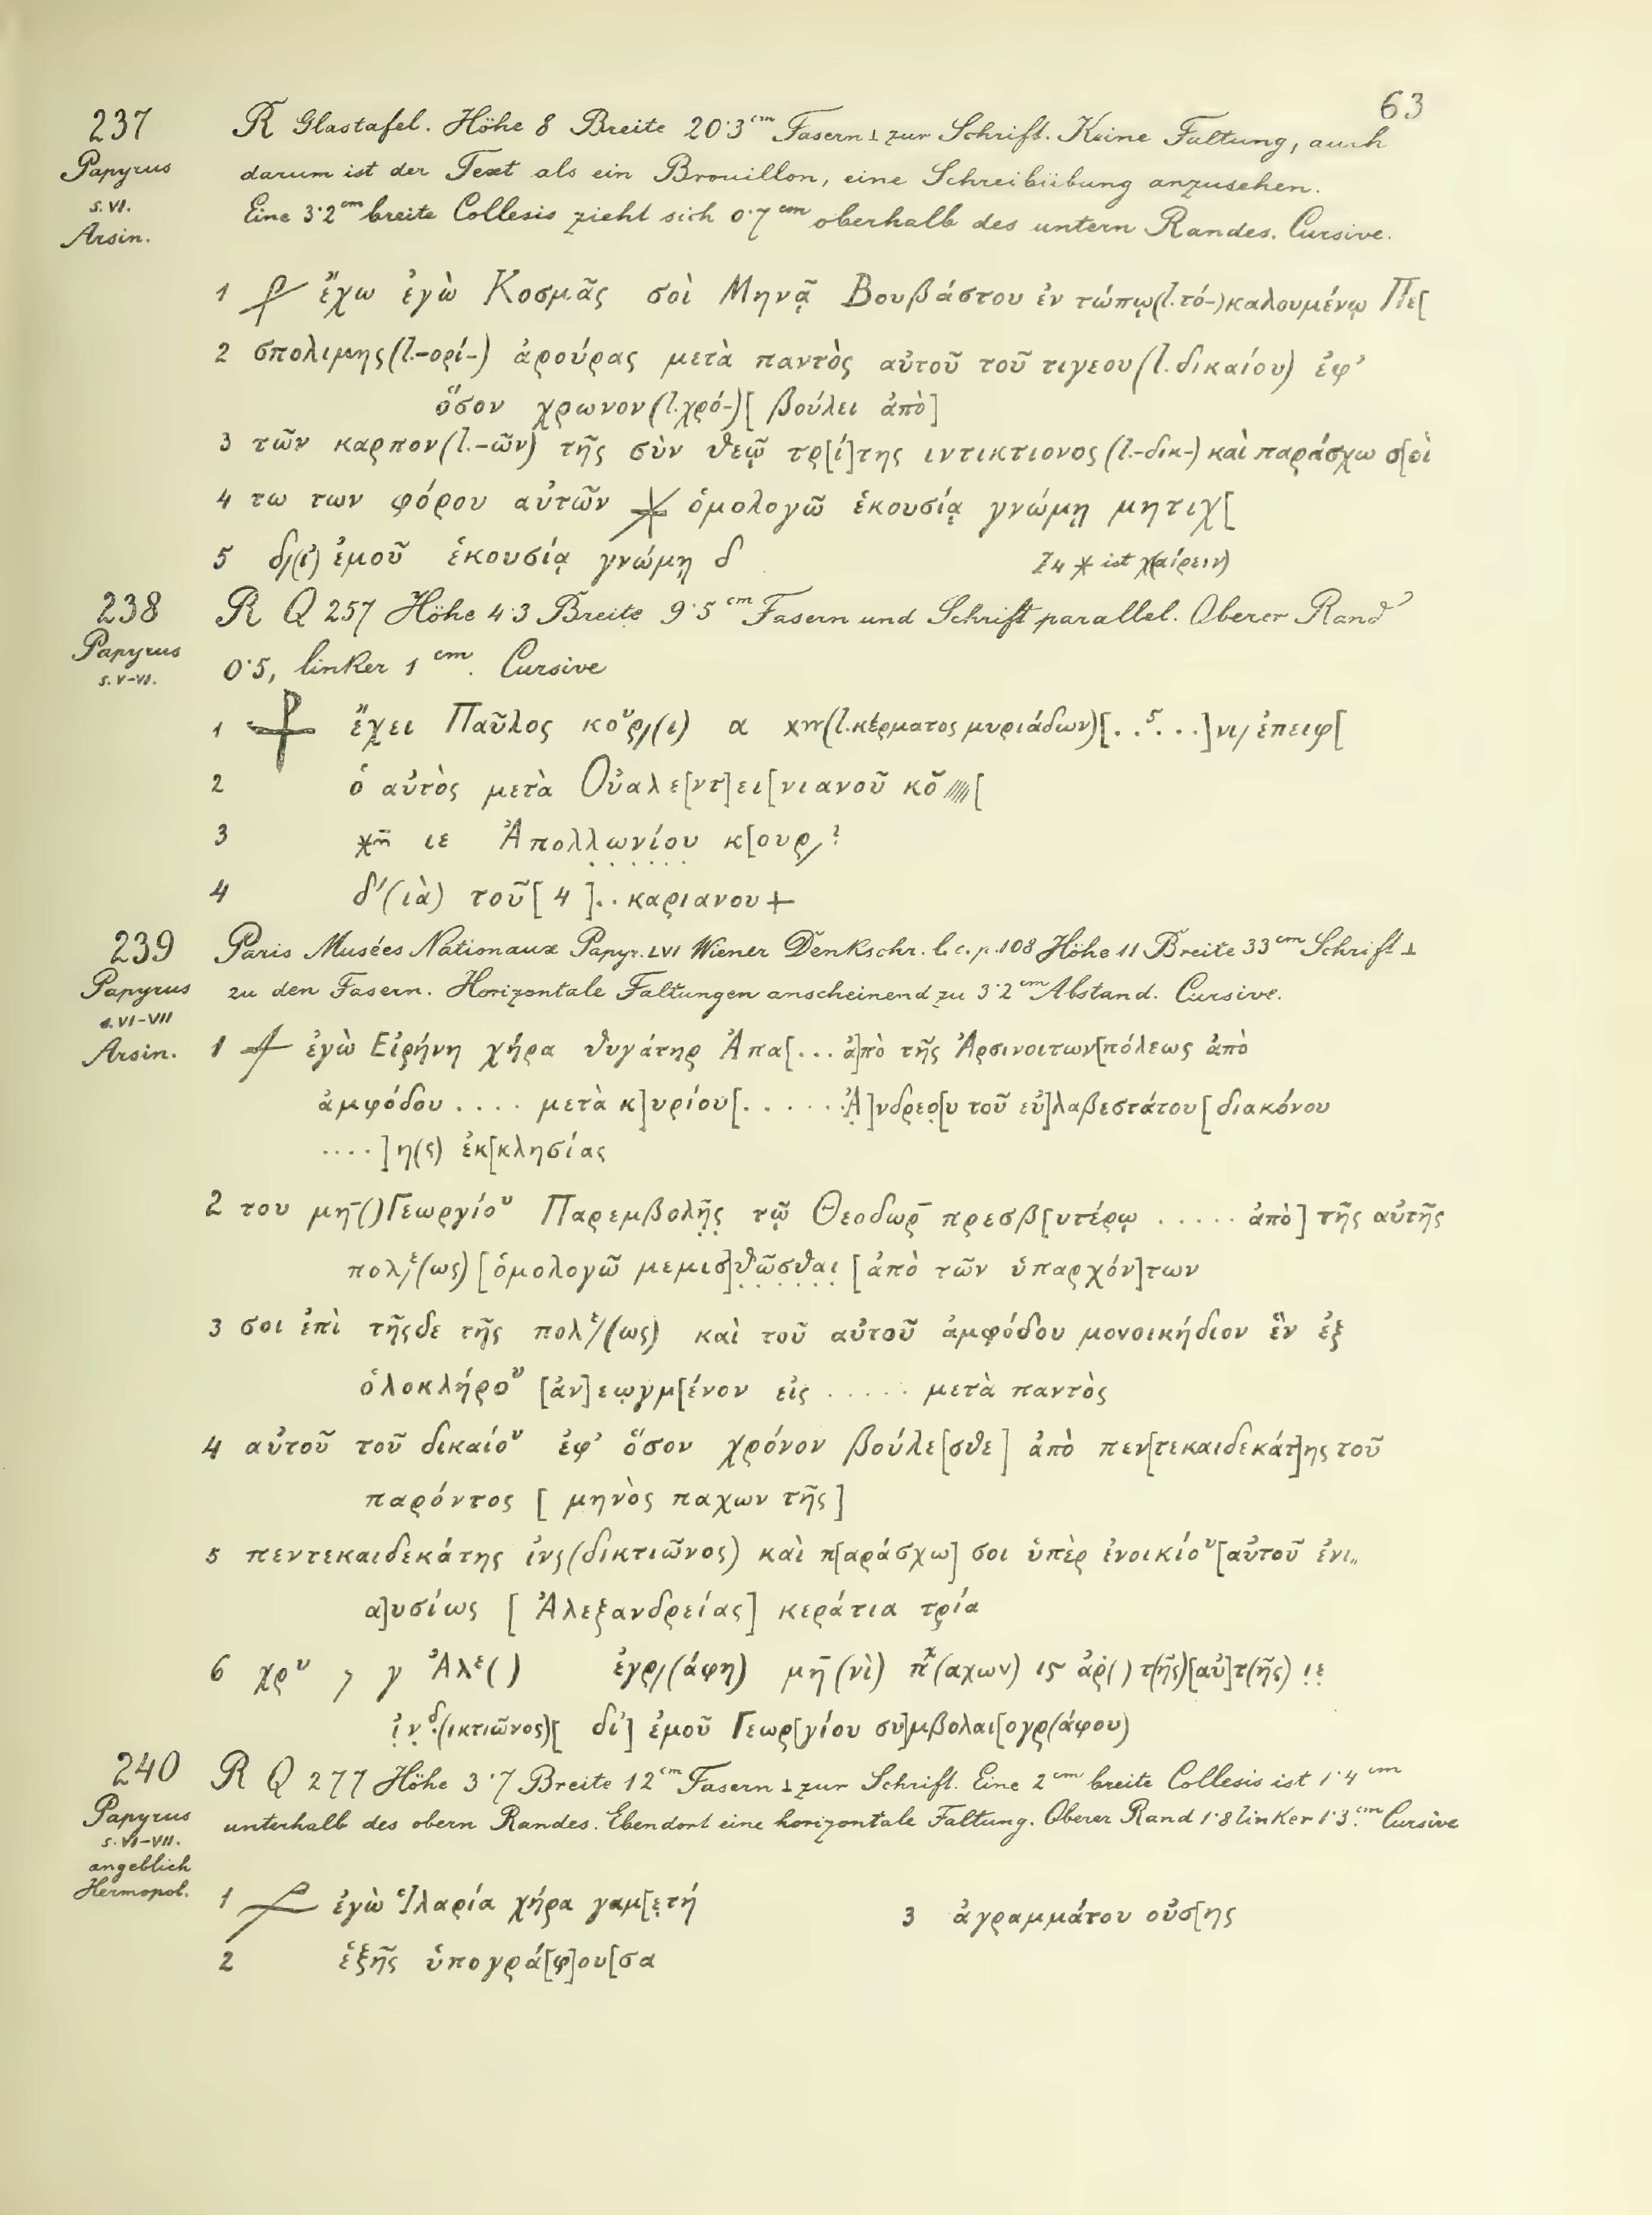 63
237 R Glastafel. Höhe 8 Breite 20·3 cm Fasern ⊥ zur Schrift. Keine Faltung, auch
Papyrus darum ist der Text als ein Brouillon, eine Schreibübung anzusehen.
s. VI. Eine 3·2 cm breite Collesis zieht sich 0·7 cm oberhalb des untern Randes. Cursive.
Arsin.
1 ⳨ ἔχω ἐγὼ Κοσμᾶς σοὶ Μηνᾷ Βουβάστου ἐν τώπῳ(l.τό-)καλουμένῳ Πε[
2 σπολιμης(l.-ορί-) ἀρούρας μετὰ παντὸς αὐτοῦ τοῦ τιγεου(l. δικαίου) ἐφ'
ὅσον χρωνον(l.χρό-)[ βούλει ἀπὸ]
3 τῶν καρπον(l.-ῶν) τῆς σὺν θεῷ τρ[ί]της ιντικτιονος(l.-δικ-) καὶ παράσχω σ[οὶ
4 τω των φόρου αὐτῶν ⳩ ὁμολογῶ ἑκουσίᾳ γνώμῃ μητιχ[
5 δ/(ι') ἐμοῦ ἑκουσίᾳ γνώμῃ δ Z4 ⳩ ist χ(αίρειν)
238 R Q 257 Höhe 4·3 Breite 9·5 cm Fasern und Schrift parallel. Oberer Rand
Papyrus 0·5, linker 1 cm. Cursive
s. V-VI.
1 ⳨ ἔχει Παῦλος κουρ/(ι) α χⲙ(l.κέρματος μυριάδων)[. .5. . .]νι/ ἐπειφ[
2 ὁ αὐτὸς μετὰ Οὐαλε[ντ]ει[νιανοῦ κο̆ ////[
3 ιε Ἀπολλωνίου κ[ουρ/?
4 δ'(ιὰ) τοῦ[ 4 ]. . καριανου +
239 Paris Musées Nationaux Papyr. LVI Wiener Denkschr. l. c. p. 108 Höhe 11 Breite 33 cm Schrift ⊥
Papyrus zu den Fasern. Horizontale Faltungen anscheinend zu 3·2 cm Abstand. Cursive.
s. VI-VII
Arsin. 1 ⳨ ἐγὼ Εἰρήνη χήρα θυγάτηρ Ἀπα[. . . ἀ]πὸ τῆς Ἀρσινοιτων[πόλεως ἀπὸ
ἀμφόδου . . . . μετὰ κ]υρίου[. . . . . . Ἀ]νδρεο[υ τοῦ εὐ]λαβεστάτου[ διακόνου
. . . . ]η(ς) ἐκ[κλησίας
2 του μη̄()Γεωργίου Παρεμβολῆς τῷ Θεοδωρ̄ πρεσβ[υτέρῳ . . . . . ἀπὸ] τῆς αὐτῆς
πολ/ε(ως) [ὁμολογῶ μεμισ]θῶσθαι [ἀπὸ τῶν ὑπαρχόν]των
3 σοι ἐπὶ τῆςδε τῆς πολε/(ως) καὶ τοῦ αὐτοῦ ἀμφόδου μονοικήδιον ἓν ἐξ
ὁλοκλήρου [ἀν]εῳγμ[ένον εἰς . . . . . μετὰ παντὸς
4 αὐτοῦ τοῦ δικαίου ἐφ' ὅσον χρόνον βούλε[σθε] ἀπὸ πεν[τεκαιδεκάτ]ης τοῦ
παρόντος [ μηνὸς παχων τῆς]
5 πεντεκαιδεκάτης ἰνς(δικτιῶνος) καὶ π[αράσχω] σοι ὑπὲρ ἐνοικίου[αὐτοῦ ἐνι..
α]υσίως [ Ἀλεξανδρείας] κεράτια τρία
6 χρυ 7 γ Ἀλε() ἐγρ/(άφη) μη̄(νὶ) πχ(αχων) ις ἀρ() τ(ῆς)[αὐ]τ(ῆς) ιε
ἰνδ(ικτιῶνος)[ δι'] ἐμοῦ Γεωρ[γίου συ]μβολαι[ογρ(άφου)
240 R Q 277 Höhe 3·7 Breite 12 cm Fasern ⊥ zur Schrift. Eine 2 cm breite Collesis ist 1·4 cm
Papyrus unterhalb des obern Randes. Ebendort eine horizontale Faltung. Oberer Rand 1·8 linker 1·3 cm. Cursive
s. VI-VII.
angeblich
Hermopol.
1 ⳨ ἐγὼ Ἱλαρία χήρα γαμ[ετή 3 ἀγραμμάτου οὔσ[ης
2 ἑξῆς ὑπογρά[φ]ου[σα